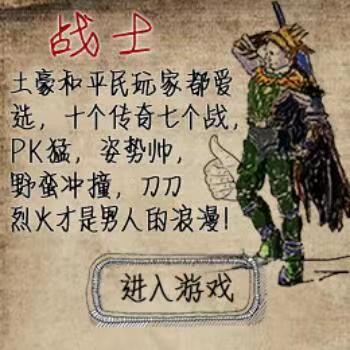 战士
土豪和平民玩家都爱
选，十个传奇七个战，
PK猛，姿势帅，
野蛮冲撞，刀刀
烈火才是男人的浪漫！
进入游戏